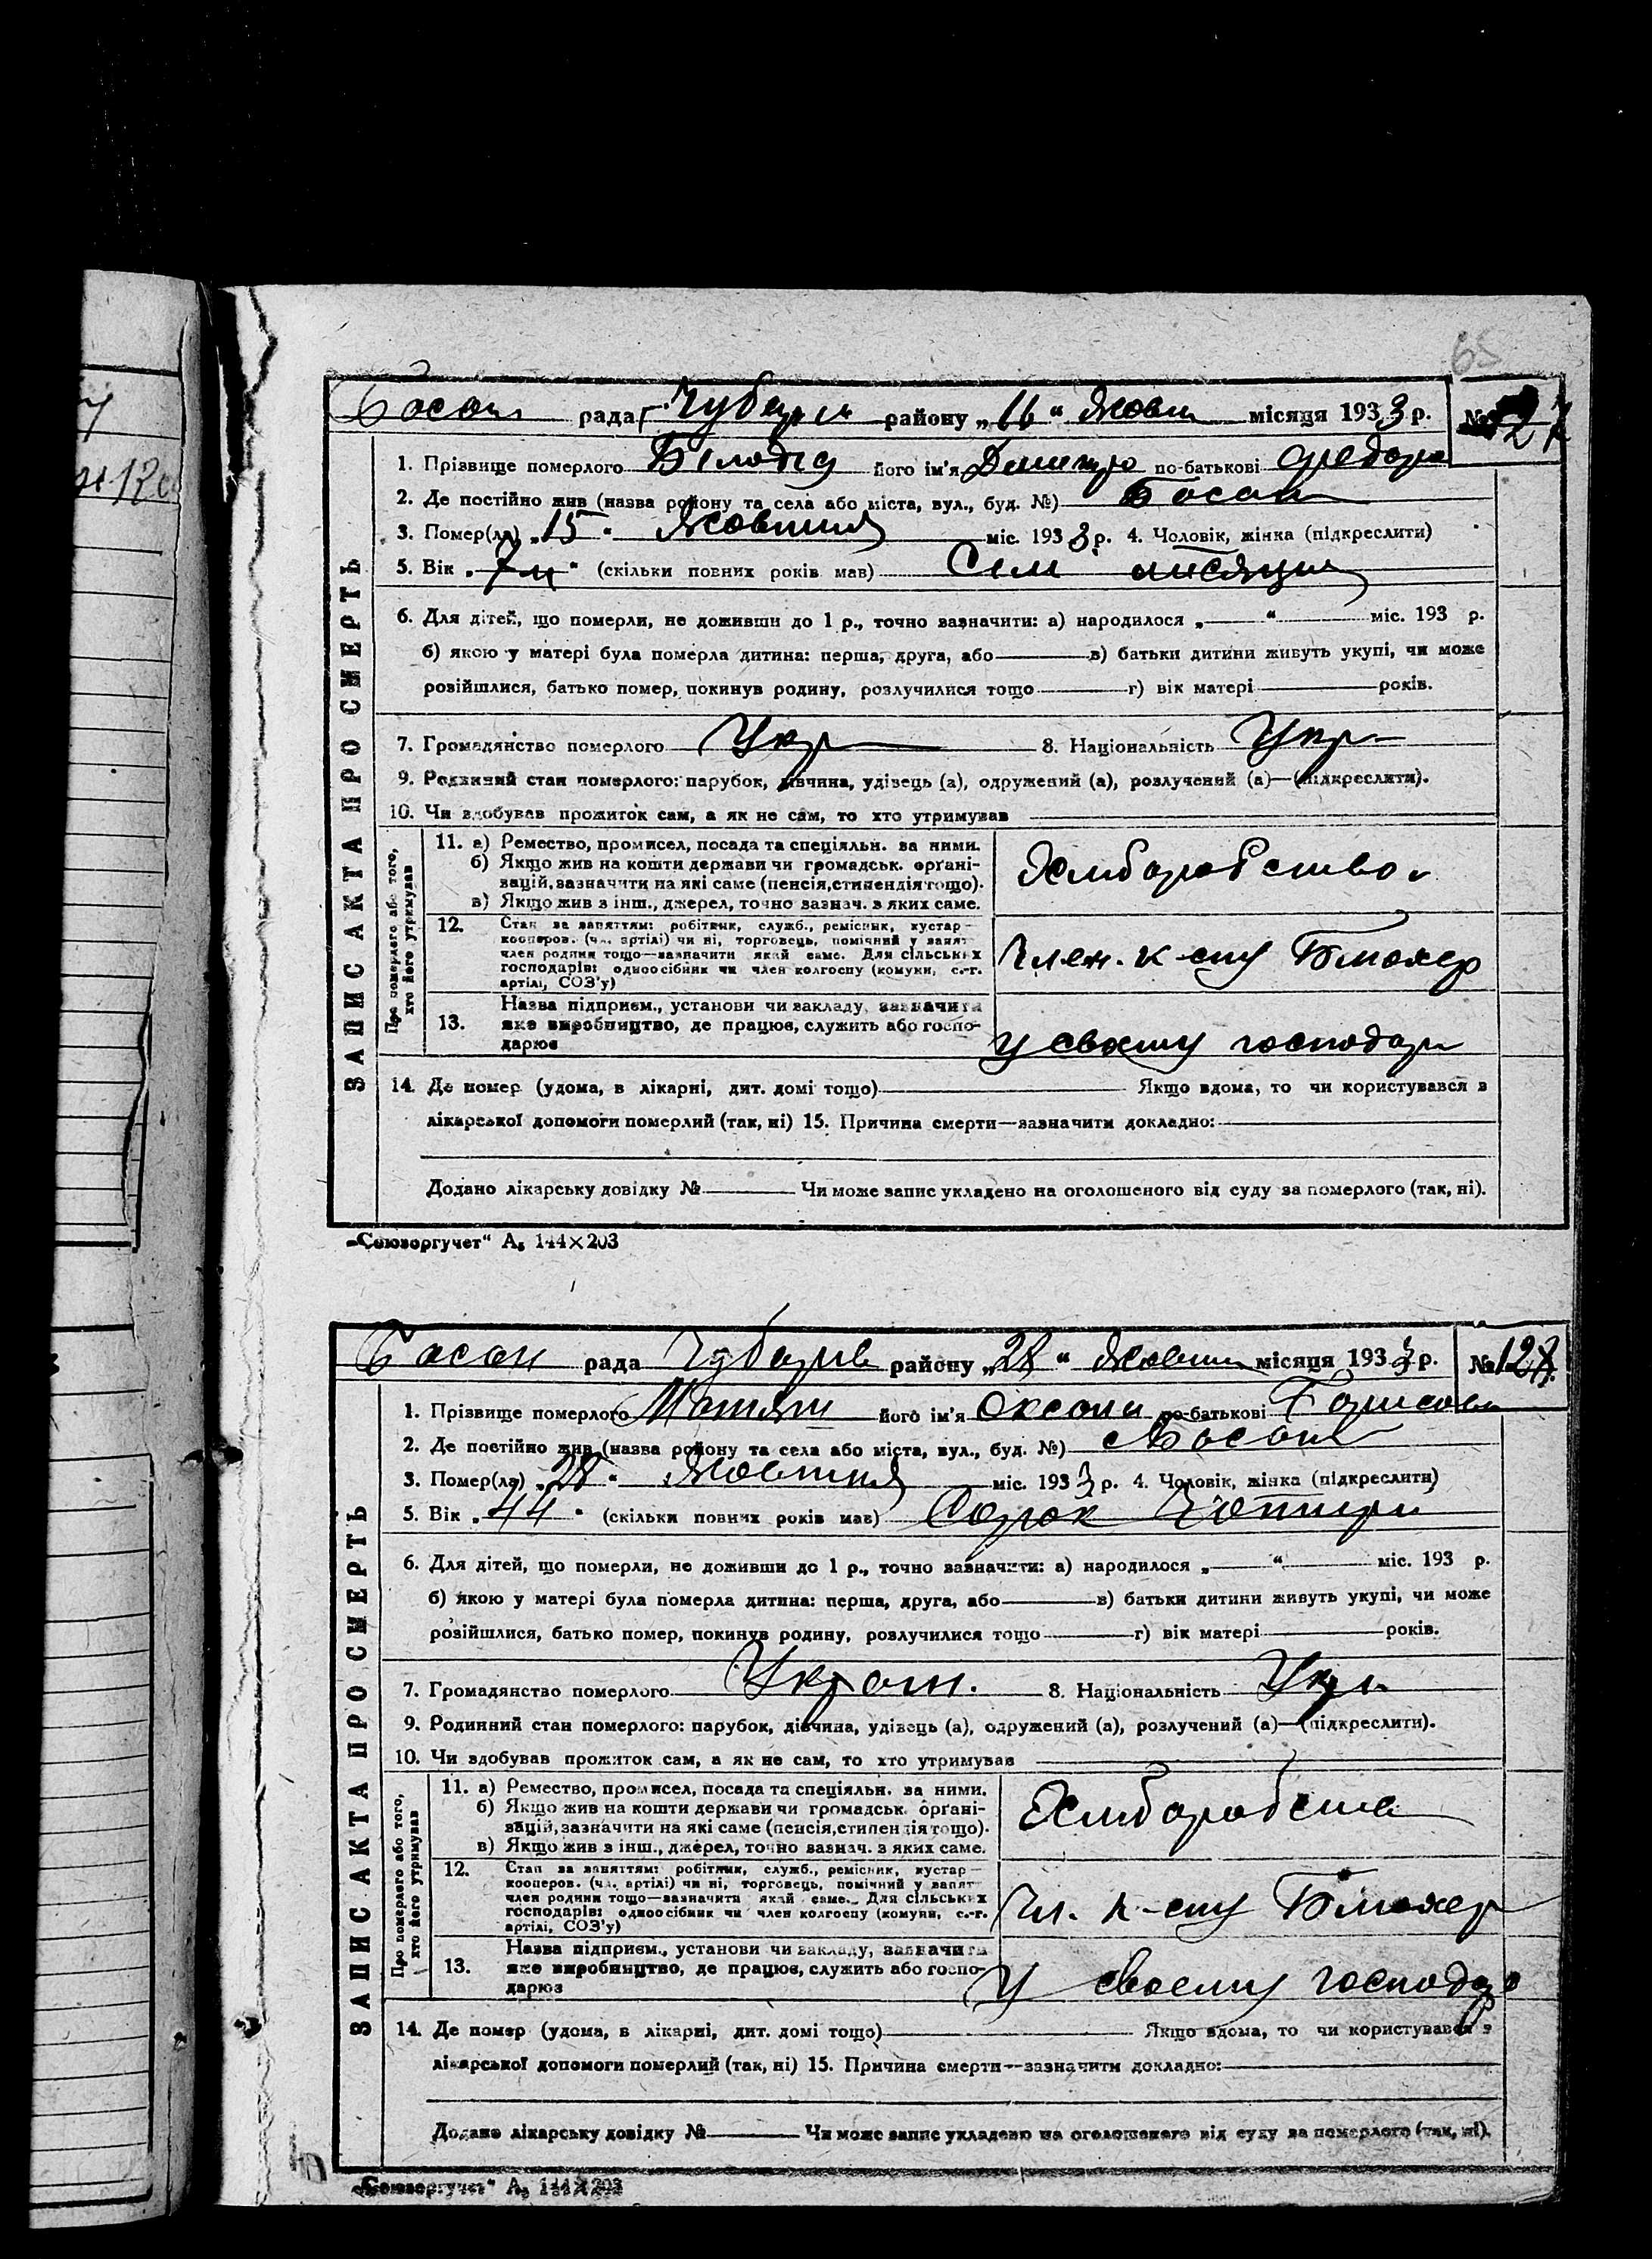 65
Басан рада Чубарів району „16“ Жовтн місяця 1933 р. № 127
ЗАПИС АКТА ПРО СМЕРТЬ
1. Прізвище померлого Білодід його ім'я Дмитро по-батькові Федоро
2. Де постійно жив (назва району та села або міста, вул., буд. №) Басан
3. Помер(ла) „15“ Жовтня міс. 1933 р. 4. Чоловік, жінка (підкреслити)
5. Вік „7 м“ (скільки повних років мав) Сім місяців
6. Для дітей, що померли, не доживши до 1 р., точно зазначити: а) народилося „ “ міс. 193 р.
б) якою у матері була померла дитина: перша, друга, або в) батьки дитини живуть укупі, чи може
розійшлися, батько помер, покинув родину, розлучилися тощо г) вік матері років.
7. Громадянство померлого Укр 8. Національність Укр
9. Родинний стан померлого: парубок, дівчина, удівець (а), одружений (а), розлучений (а)—(підкреслити).
10. Чи здобував прожиток сам, а як не сам, то хто утримував
Про померлого або того, хто його утримував
11. а) Ремество, промисел, посада та спеціяльн. за ними.
б) Якщо жив на кошти держави чи громадськ. органі-
зацій, зазначити на які саме (пенсія, стипендія тощо).
в) Якщо жив з інш., джерел, точно зазнач. з яких саме.
Хліборобство
12. Стан за заняттям: робітник, служб., ремісник, кустар—
кооперов. (чл. артілі) чи ні, торговець, помічний у занят.
член родини тощо—зазначити який саме. Для сільських
господарів: одноосібник чи член колгоспу (комуни, с.-г.
артілі, СОЗ'у)
Член. к-спу Блюхер
13. Назва підприєм., установи чи закладу, зазначити
яке виробництво, де працює, служить або госпо-
дарює
У своєму господар
14. Де помер (удома, в лікарні, дит. домі тощо) Якщо вдома, то чи користувався з
лікарської допомоги померлий (так, ні) 15. Причина смерти—зазначити докладно:
Додано лікарську довідку № Чи може запис укладено на оголошеного від суду за померлого (так, ні).
„Союзоргучет“ А₅ 144×203
Басан рада Чубарів району „28“ Жовтн місяця 1933 р. № 128
ЗАПИС АКТА ПРО СМЕРТЬ
1. Прізвище померлого його ім'я Оксана по-батькові Борисовн
2. Де постійно жив (назва району та села або міста, вул., буд. №) Басан
3. Помер(ла) „28“ Жовтня міс. 1933 р. 4. Чоловік, жінка (підкреслити)
5. Вік „44“ (скільки повних років мав) Сорок Чотири
6. Для дітей, що померли, не доживши до 1 р., точно зазначити: а) народилося „ “ міс. 193 р.
б) якою у матері була померла дитина: перша, друга, або в) батьки дитини живуть укупі, чи може
розійшлися, батько помер, покинув родину, розлучилися тощо г) вік матері років.
7. Громадянство померлого Україн. 8. Національність Укр.
9. Родинний стан померлого: парубок, дівчина, удівець (а), одружений (а), розлучений (а)—(підкреслити).
10. Чи здобував прожиток сам, а як не сам, то хто утримував
Про померлого або того, хто його утримував
11. а) Ремество, промисел, посада та спеціяльн. за ними.
б) Якщо жив на кошти держави чи громадськ. органі-
зацій, зазначити на які саме (пенсія, стипендія тощо).
в) Якщо жив з інш., джерел, точно зазнач. з яких саме.
Хліборобств
12. Стан за заняттям: робітник, служб., ремісник, кустар—
кооперов. (чл. артілі) чи ні, торговець, помічний у занят.
член родини тощо—зазначити який саме. Для сільських
господарів: одноосібник чи член колгоспу (комуни, с.-г.
артілі, СОЗ'у)
Чл. к-спу Блюхер
13. Назва підприєм., установи чи закладу, зазначити
яке виробництво, де працює, служить або госпо-
дарює
У своєму господар
14. Де помер (удома, в лікарні, дит. домі тощо) Якщо вдома, то чи користувався з
лікарської допомоги померлий (так, ні) 15. Причина смерти—зазначити докладно:
Додано лікарську довідку № Чи може запис укладено на оголошеного від суду за померлого (так, ні).
„Союзоргучет“ А₅ 144×203